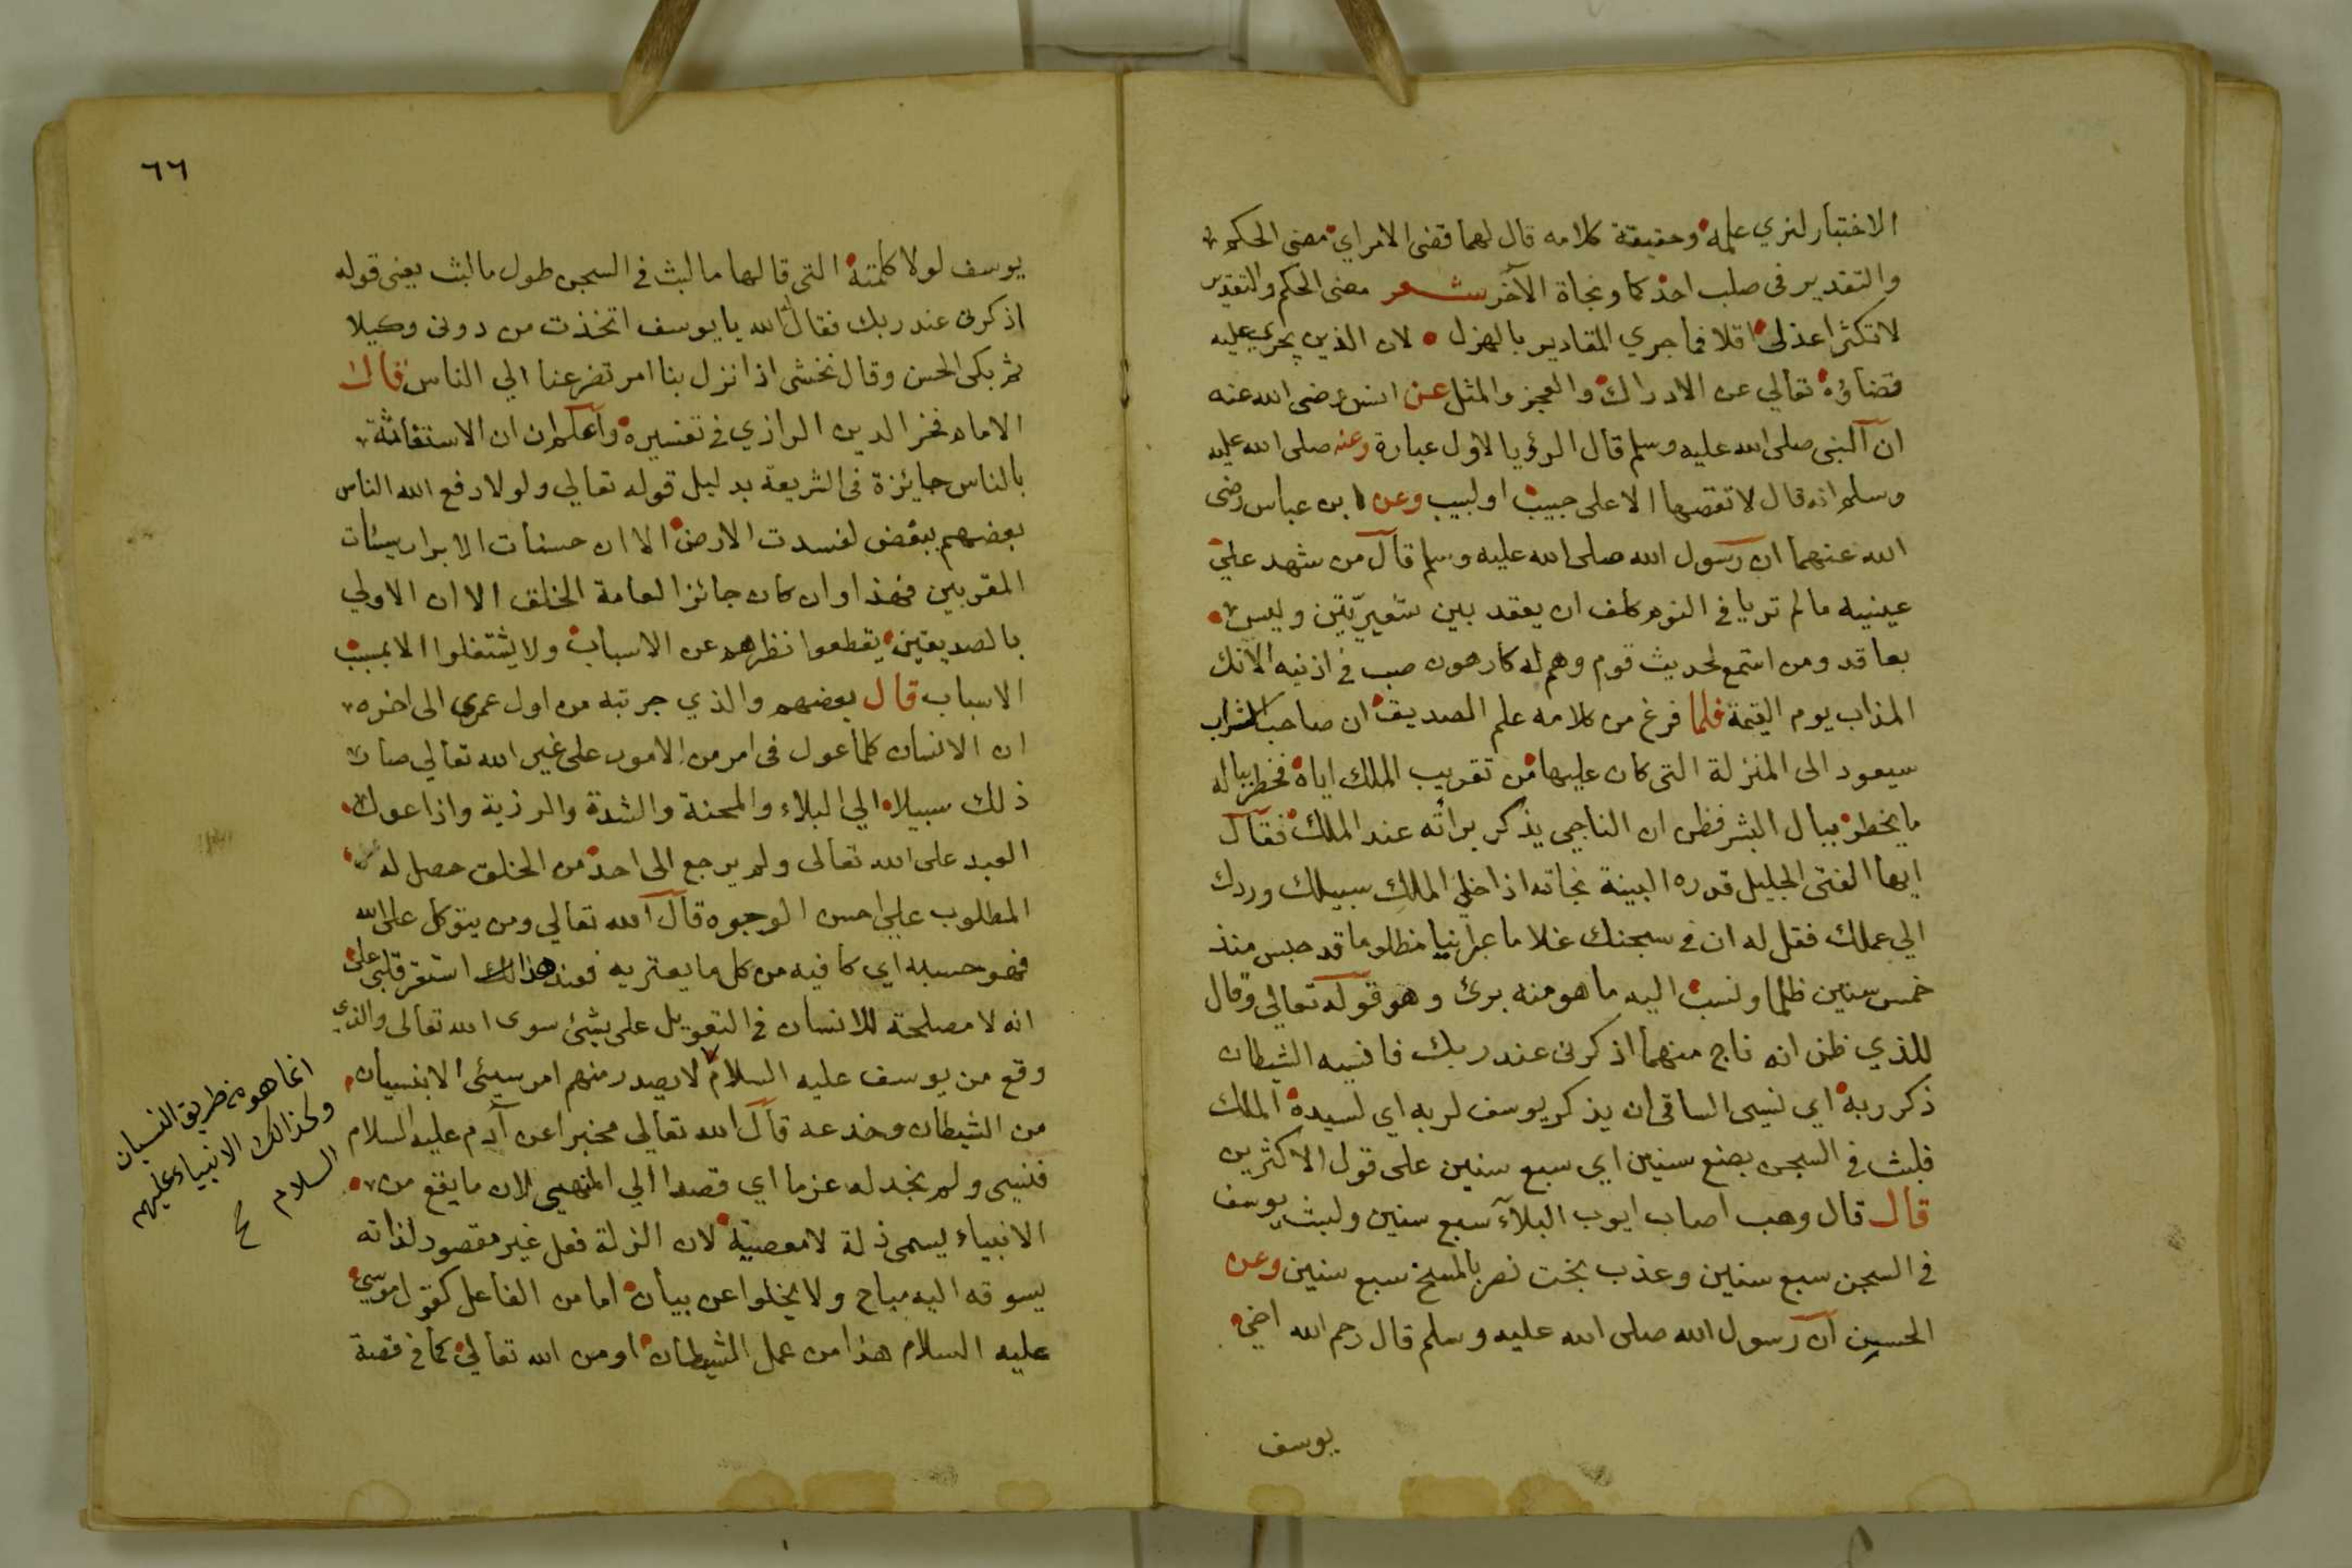 الاختبار لنري علمه وحقيقة كلامه قال لهما قضى الامراي مضى الحكم
والتقدير في صلب احدكما ونجاة الآخر شعر مضى الحكم والتقدير
لا تكثرا عذلى اقلا فما جري المقادير بالهزل لان الذين يجري عليه
قضاؤه تعالي عن الادراك والعجز والمثل عن انس رضى الله عنه
ان النبى صلى الله عليه وسلم قال الرؤيا لاول عبارة وعنه صلى الله عليه
وسلم انه قال لا تقصها الا على حبيب او لبيب وعن ابن عباس رضى
الله عنهما ان رسول الله صلى الله عليه وسلم قال من شهد علي
عينيه ما لم تريا في النوم كلف ان يعقد بين شعيرتين وليس
بعاقد ومن استمع لحديث قوم وهم له كارهون صب في اذنيه الآنك
المذاب يوم القيمة فلما فرغ من كلامه علم الصديق ان صاحب الشراب
سيعود الى المنزلة التى كان عليها من تقريب الملك اياه فخطر بباله
ما يخطر ببال البشر فظن ان الناجي يذكر برأته عند الملك فقال
ايها الفتى الجليل قدره البينة نجاته اذا خلي الملك سبيلك وردك
الي عملك فقل له ان في سجنك غلاما عبرانيا مظلوما قد حبس منذ
خمس سنين ظلما ونسب اليه ما هو منه برئ وهو قوله تعالي وقال
للذي ظن انه ناج منهما اذكرنى عند ربك فانسيه الشيطان
ذكر ربه اي نسى الساقى ان يذكر يوسف لربه اي لسيده الملك
فلبث في السجن بضع سنين اي سبع سنين على قول الاكثرين
قال قال وهب اصاب ايوب البلآء سبع سنين ولبث يوسف
في السجن سبع سنين وعذب بخت نصر بالمسخ سبع سنين وعن
الحسين ان رسول الله صلى الله عليه وسلم قال رحم الله اخي
يوسف
٦٦
يوسف لولا كلمته التى قالها ما لبث في السجن طول ما لبث يعنى قوله
اذكرنى عند ربك فقال الله يا يوسف اتخذت من دونى وكيلا
ثم بكى الحسن وقال نخشى اذا نزل بنا امر تضرعنا الي الناس قال
الامام فخر الدين الرازي في تفسيره واعلم ان الاستغاثة
بالناس جايزة في الشريعة بدليل قوله تعالي ولولا دفع الله الناس
بعضهم ببعض لفسدت الارض الا ان حسنات الابرار سيئات
المقربين فهذا وان كان جائزا لعامة الخلق الا ان الاولي
بالصديقين يقطعوا نظرهم عن الاسباب ولا يشتغلوا الا بمسبب
الاسباب قال بعضهم والذي جربته من اول عمري الى اخره
ان الانسان كلما عول في امر من الامور على غير الله تعالي صار
ذلك سبيلا الي البلاء والمحنة والشدة والرزية واذا عول
العبد على الله تعالى ولم يرجع الى احد من الخلق حصل له
المطلوب علي احسن الوجوه قال الله تعالي ومن يتوكل على الله
فهو حسبه اي كافيه من كل ما يعتريه فعند هذا لك استقر قلبي على
انه لا مصلحة للانسان في التعويل على شئ سوى الله تعالى والذي
وقع من يوسف عليه السلام لا يصدر منهم امر سيئى الا بنسيان
من الشيطان وخدعه قال الله تعالي مخبرا عن آدم عليه السلام
فنسي ولم نجد له عزما اي قصدا الي المنهي لان ما يقع من
الانبياء يسمى ذلة لا معصية لان الزلة فعل غير مقصود لذاته
يسوقه اليه مباح ولا يخلوا عن بيان اما من الفاعل كقول موسى
عليه السلام هذا من عمل الشيطان او من الله تعالي كما في قصة
انما هو من طريق النسيان
وكذالك الانبياء عليهم
السلام صح